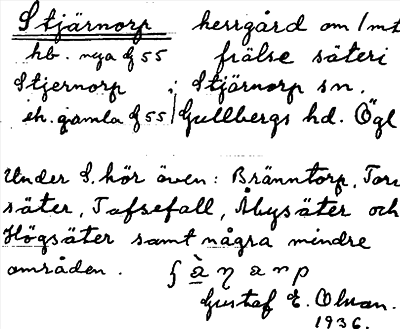 Stjärnorp herrgård om 1 mt
hb. nya G 55 frälse säteri
Stjernorp i Stjärnorp sn.
eh. gamla G 55 Gullbergs hd. Ögl
Under S. hör även: Bränntorp,
säter, Tafsefall, Åbysäter och
Högsäter samt några mindre
områden.
Gustaf E. Olwan.
1936.